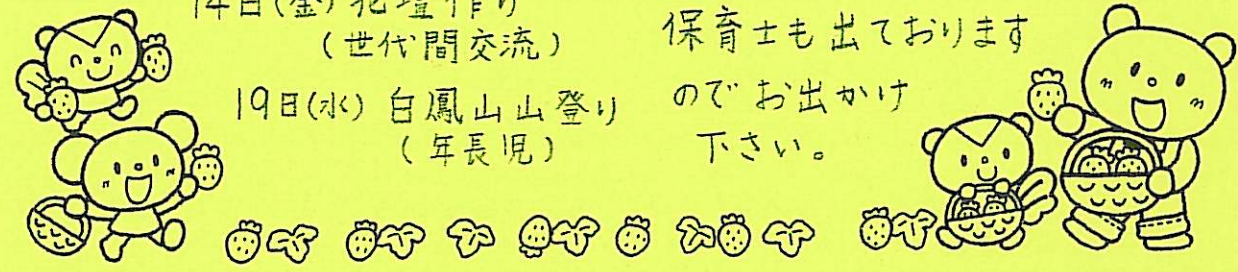 14日(金) 花壇作り
(世代間交流)
19日(水) 白鳳山山登り
(年長児)
保育士も出ております
のでお出かけ
下さい。